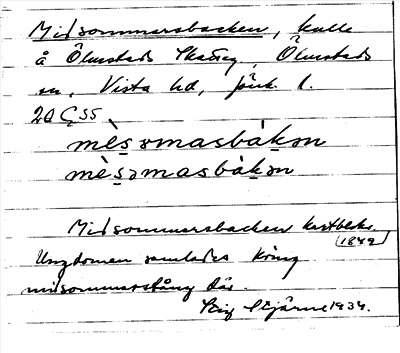 Midsommarsbacken, kulle
å Ölmstads Skattег, Ölmstads
sn, Vista hd, Jönk. l.
20 Ç 55
mèsomasbàkən
mèsəmasbàkən
Midsommarsbacken kartbeks.
1849
Ungdomen samlades kring
midsommarstång där.
Stig Stjärne 1934.